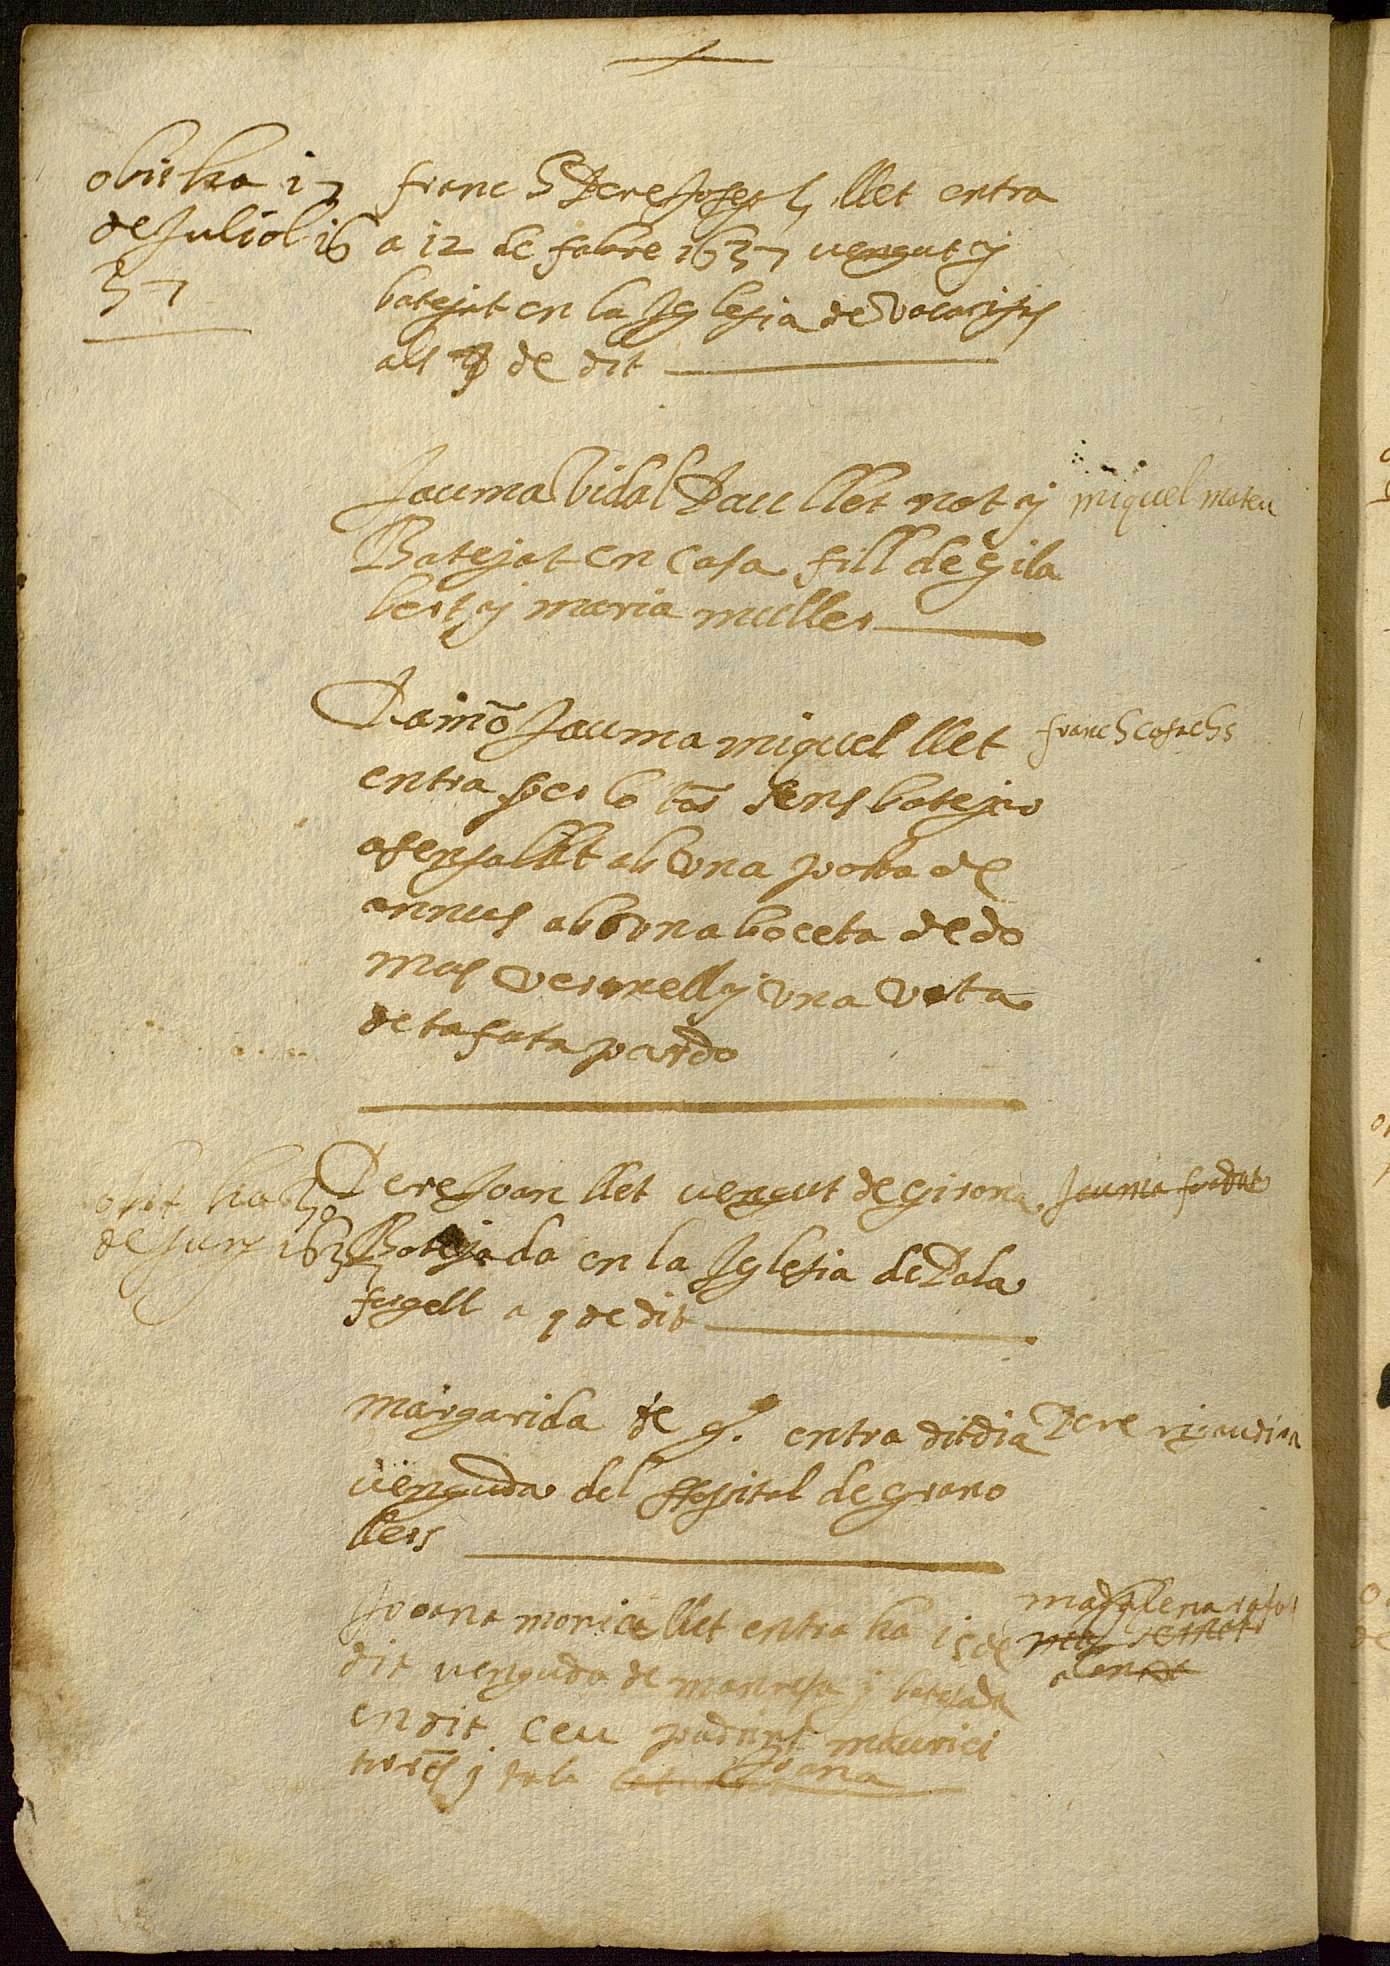 obit ha 17
de Juliol 16
37
franch Pere Joseph llet entra
a 12 de fabre 1637 vengut y
batejat en la Iglesia de Vacarisas
als 9 de dit
Jauma Vidal Pau llet not y
Batejat en Casa fill de gila
bert y maria muller
miquel mateu
Ramō Jauma miquel llet
entra per lo tōr sens batejar
asenyallat ab Una polsa de
annus ab una boceta de do
mas vermell y Una veta
de tafata pardo
franch cosachs
obit ha 30
de Juny 1637
Pere Joan llet vengut de girona
Batejada en la Iglesia de Pala
frgell a 9 de dit
Jauma fordat
margarida de q. entra dit dia
venguda del Hospital de grano
llers
Pere rigaudias
Joana maria llet entra ha 15 de
dit venguda de manresa y batejada
en dit Ceu padrins maurici
y Joana
madalena